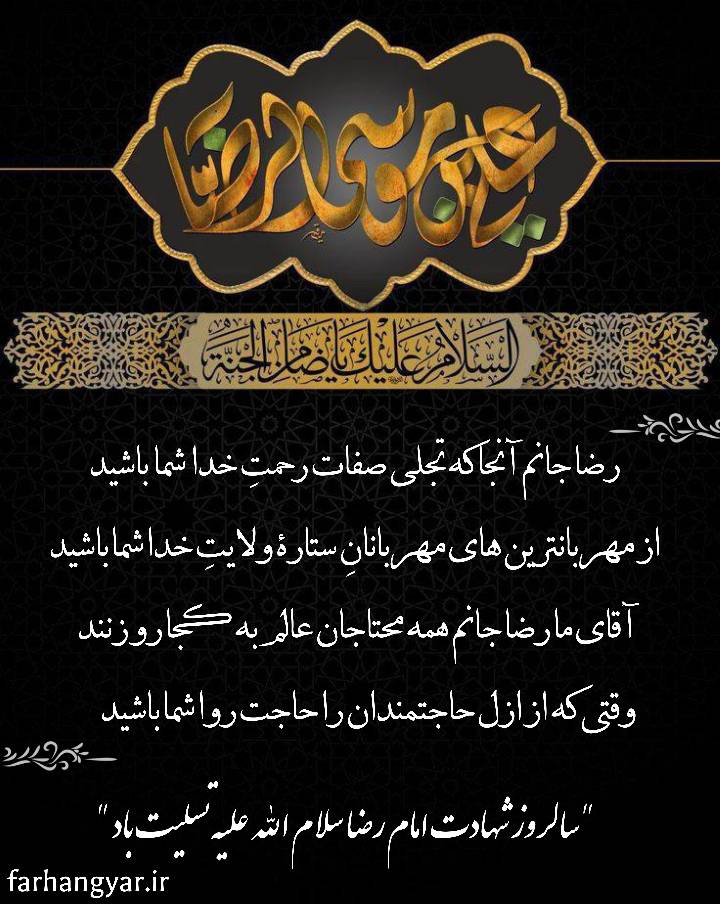 علی بن موسی الرضا
السَّلامُ عَلَیْكَ یا ضامِنَ الجَنَّة
رضا جانم آنجا که تجلی صفات رحمتِ خدا شما باشید
از مهربانترین های مهربانانِ ستارهٔ ولایتِ خدا شما باشید
آقای ما رضا جانم همه محتاجان عالم به کجا رو زنند
وقتی که از ازل حاجتمندان را حاجت روا شما باشید
"سالروز شهادت امام رضا سلام الله علیه تسلیت باد"
farhangyar.ir